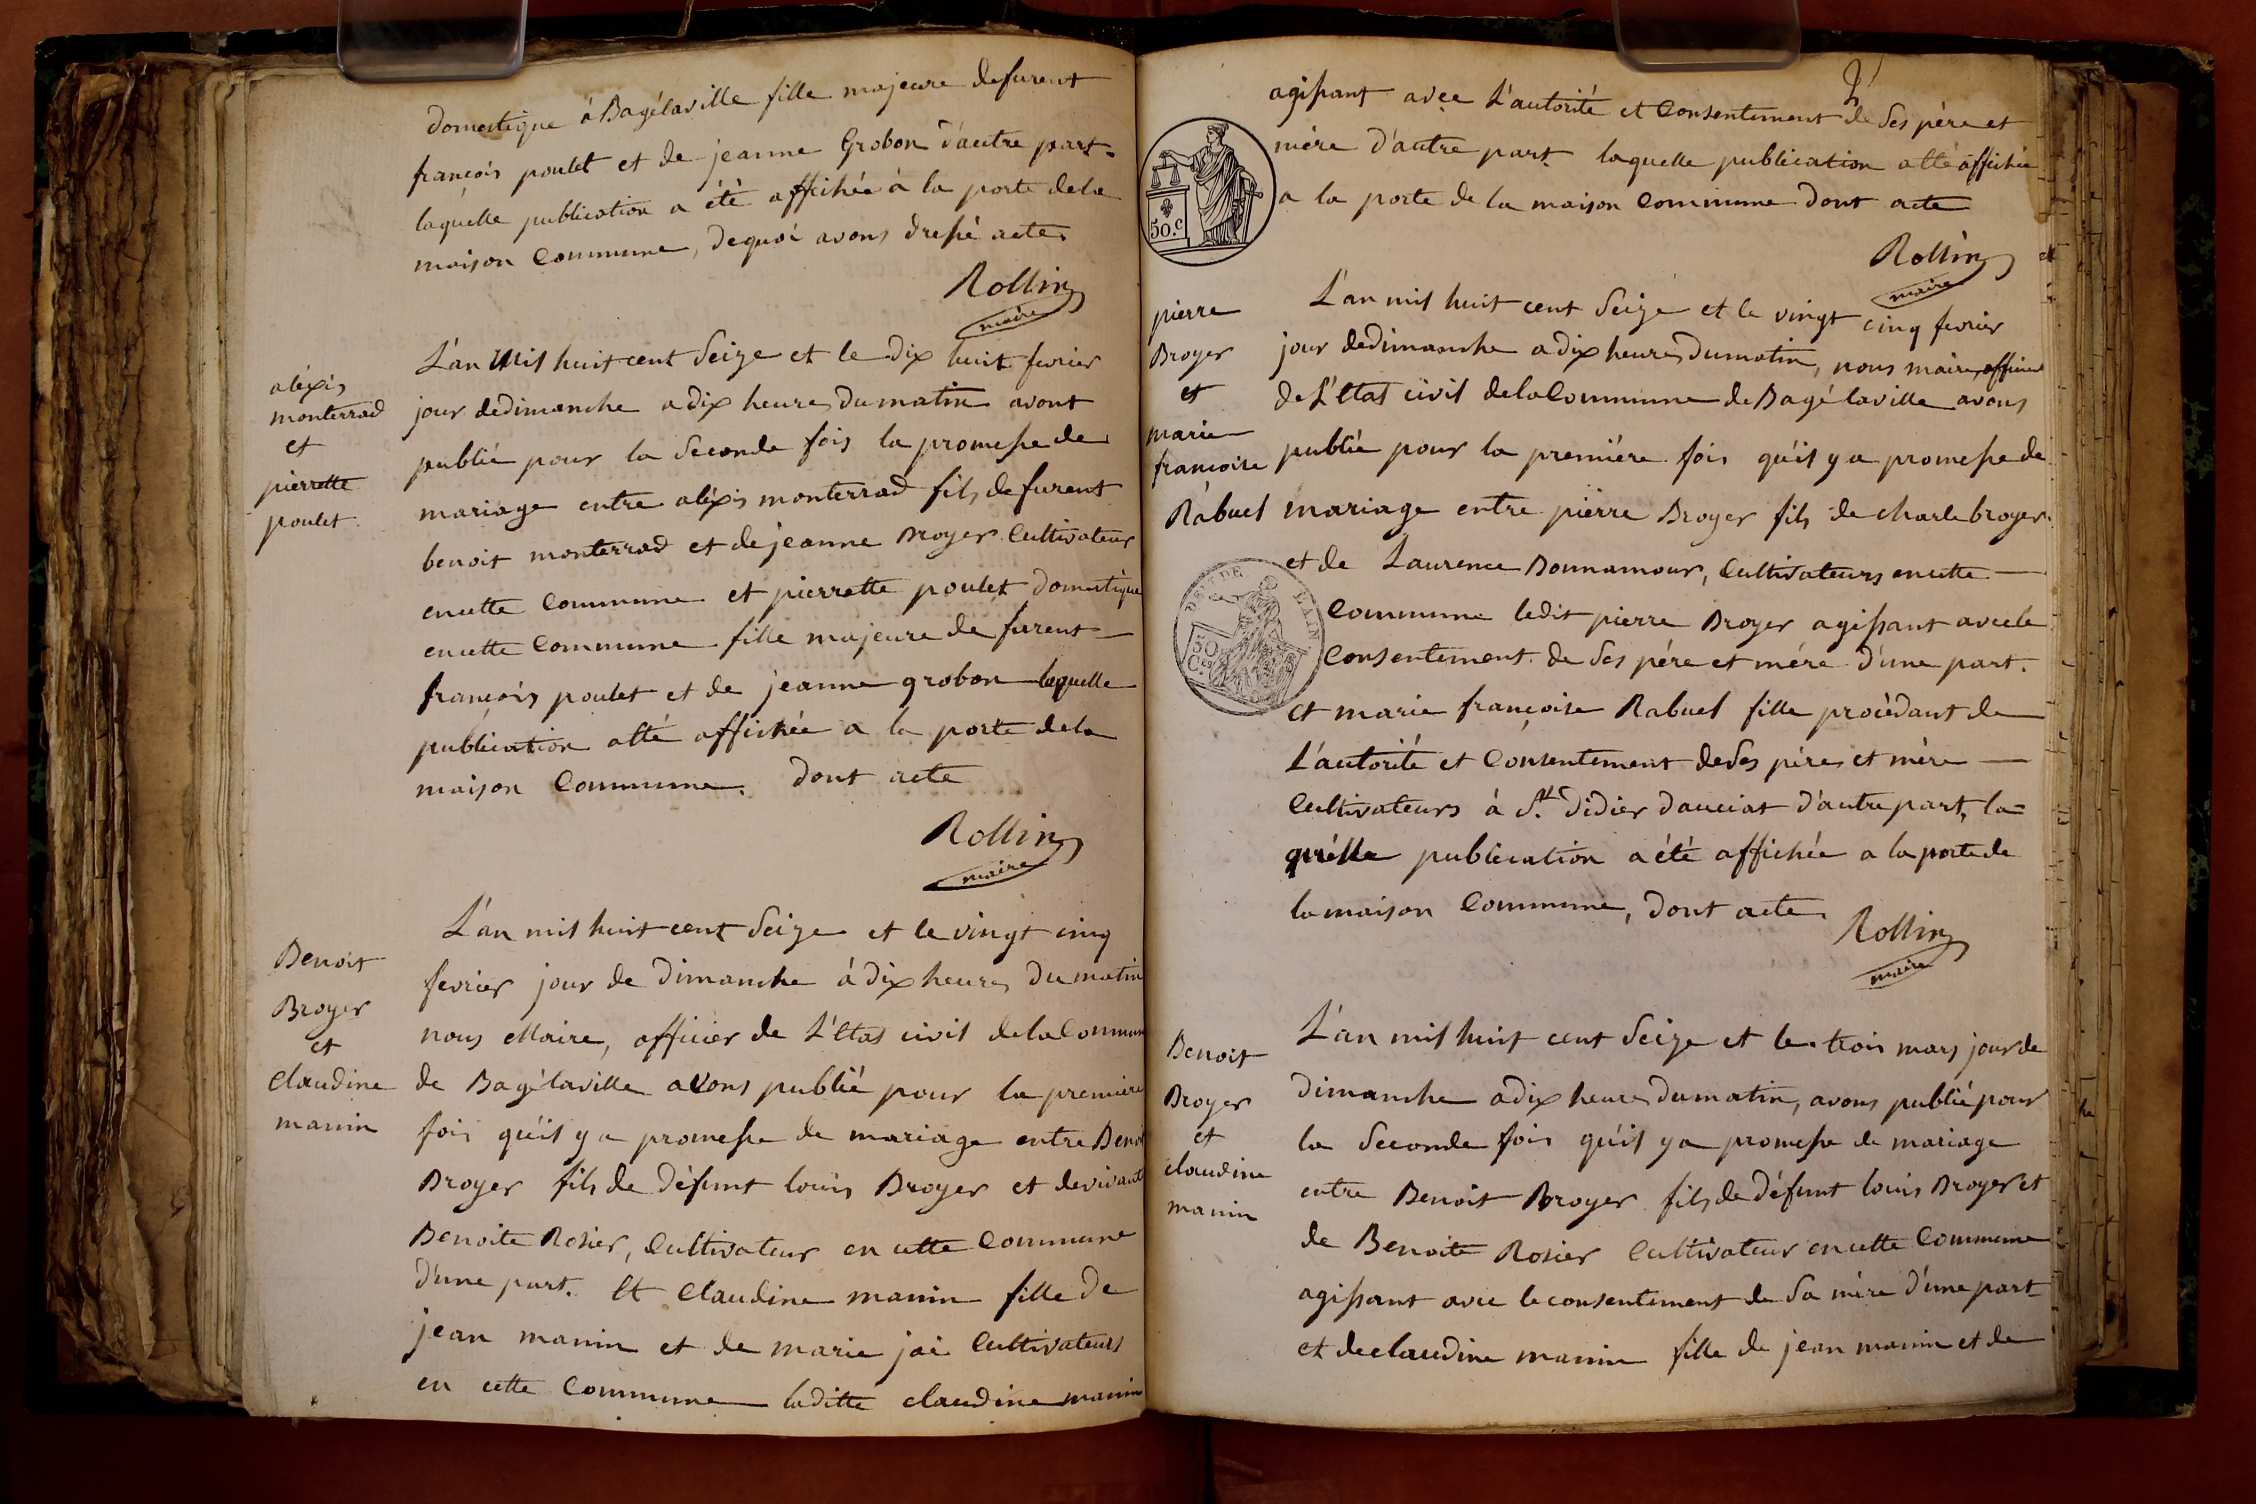 domestique á Bagélaville fille majeure defurent
françois poulet et de jeanne Grobon d'autre part.
laquelle publication a été affichée à la porte dela
maison Commune, dequoi avons dressé acte.
Rollin
maire
aléxis
monterrad
et
pierrette
poulet
L'an mil huit cent Seize et le dix huit fevrier
jour dedimanche adix heures dumatin avont
publié pour la Seconde fois la promesse de
mariage entre aléxis monterrad fils defurent
benoit monterrad et dejeanne Broyer Cultivateur
encette Commune et pierrette poulet domestique
encette Commune fille majeure de furent
françois poulet et de jeanne grobon laquelle
publication atté affichée a la porte dela
maison Commune. dont acte
Rollin
maire
Benoit
Broyer
et
claudine
manin
L'an mil huit cent Seize et le vingt cinq
fevrier jour de dimanche á dix heures du matin
nous Maire, officier de L'Etat civil delaCommun
de Bagélaville avons publié pour la premiere
fois qu'il y a promesse de mariage entre Benoi
Broyer fils de défunt louis Broyer et devivante
Benoite Rosier, Cultivateur en cette Commune
d'une part. Et Claudine manin fille de
jean manin et de marie jai Cultivateurs
en cette Commune laditte claudine manin
agissant avec L'autorité et Consentement de Ses pére et
mére d'autre part laquelle publication atté affichée
a la porte de la maison Commune dont acte
Rollin
maire
50.c
pierre
Broyer
et
marie
francoise
Rabuel
L'an mil huit cent Seize et le vingt cinq fevrier
jour dedimanche adix heures dumatin, nous maire officier
de L'Etat civil delaCommune de Bagélaville avons
publié pour la premiére fois qu'il y a promesse de
mariage entre pierre Broyer fils de charle broyer
et de Laurence Bonnamour, Cultivateurs encette
Commune ledit pierre Broyer agissant avecle
Consentement de Ses pére et mére d'une part.
DEP. DE L'AIN
50
Ces
et marie françoise Rabuel fille procédant de
L'autorité et Consentement deSes pére et mére
Cultivateurs à St. Didier dauciat d'autre part, la=
quélle publication a été affichée a la porte de
la maison Commune, dont acte.
Rollin
maire
Benoit
Broyer
et
claudine
manin
L'an mil huit cent Seize et le trois mars jour de
dimanche adix heures dumatin, avons publié pour
la Seconde fois qu'il y a promesse de mariage
entre Benoit Broyer fils de défunt louis Broyer et
de Benoite Rosier Cultivateur encette Commune
agissant avec leconsentement de Sa mére d'une part
et declaudine manin fille de jean manin et de